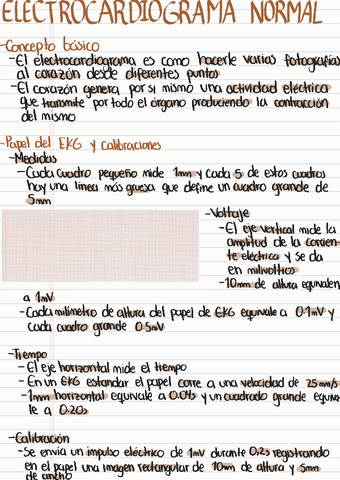 ELECTROCARDIOGRAMA NORMAL
-Concepto básico
-El electrocardiograma es como hacerle varias fotografías
al corazón desde diferentes puntos
-El corazón genera por si mismo una actividad eléctrica
que transmite por todo el órgano produciendo la contracción
del mismo
-Papel del EKG y calibraciones
-Medidas
-Cada cuadro pequeño mide 1mm y cada 5 de estos cuadros
hay una linea más gruesa que define un cuadro grande de
5mm
-Voltaje
-El eje vertical mide la
amplitud de la corrien-
te eléctrica y se da
en milivoltios
-10mm de altura equivalen
a 1mV
-Cada milímetro de altura del papel de EKG equivale a 0.1mV y
cada cuadro grande 0.5mV
-Tiempo
-El eje horizontal mide el tiempo
-En un EKG estandar el papel corre a una velocidad de 25mm/s
-1mm horizontal equivale a 0.04s y un cuadrado grande equiva-
le a 0.20s
-Calibración
-Se envia un impulso eléctrico de 1mV durante 0.2s registrando
en el papel una imagen rectangular de 10mm de altura y 5mm
de ancho